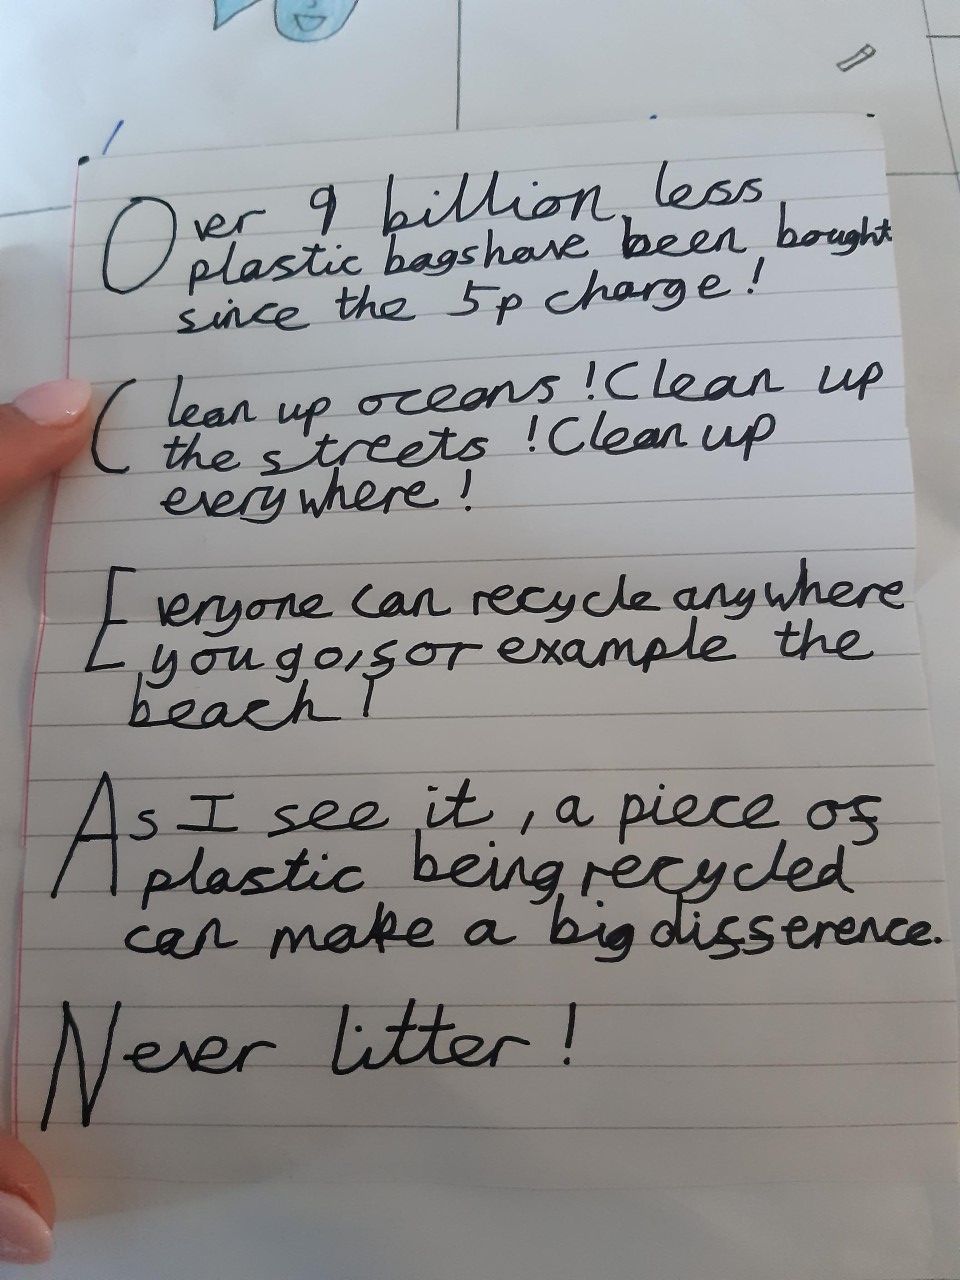 Over 9 billion less
plastic bags have been bought
since the 5p charge!
Clean up oceans! Clean up
the streets! Clean up
everywhere!
Everyone can recycle anywhere
you go, for example the
beach!
As I see it, a piece of
plastic being recycled
can make a big difference.
Never litter!